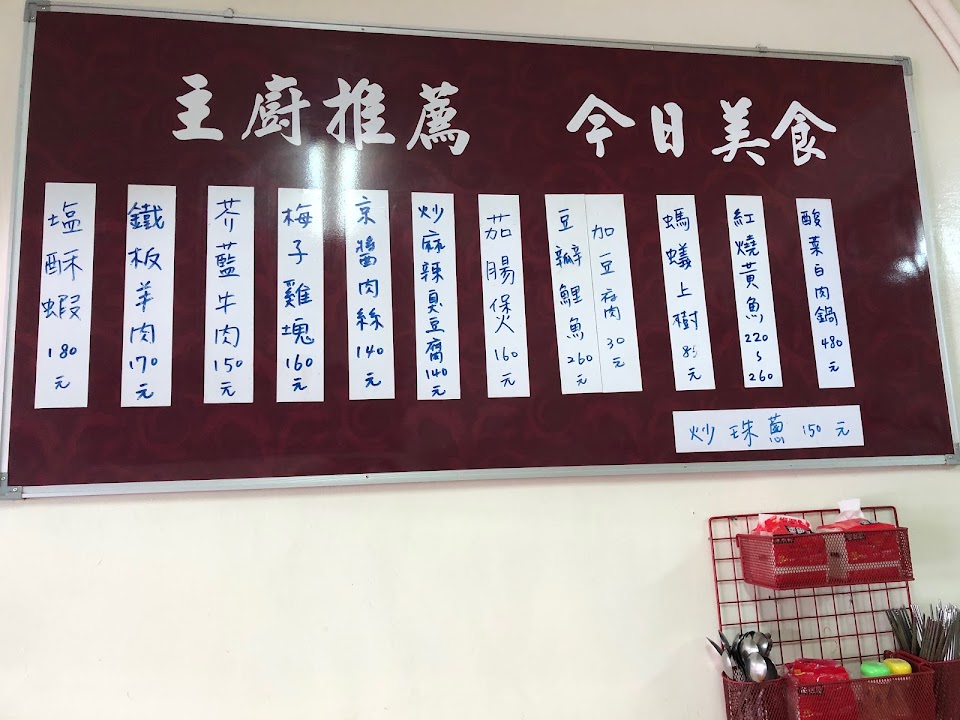 主廚推薦 今日美食
塩酥蝦 180元
鐵板羊肉 170元
芥藍牛肉 150元
梅子雞塊 160元
京醬肉絲 140元
炒麻辣臭豆腐 140元
茄腸煲 160元
豆瓣鯉魚 260元
加豆腐 30元
螞蟻上樹 85元
紅燒黃魚 220~260
酸菜白肉鍋 480元
炒珠蔥 150元